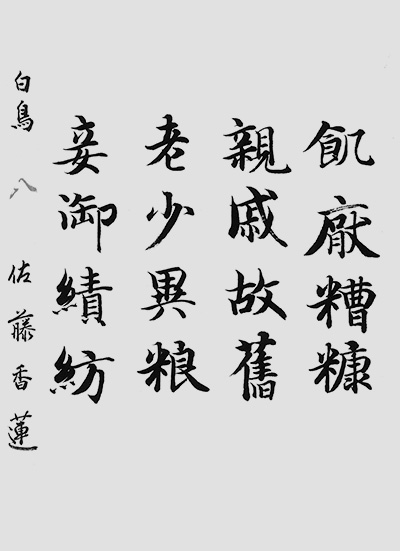 飢厭糟糠
親戚故舊
老少異粮
妾御績紡
白鳥 八 佐藤香蓮